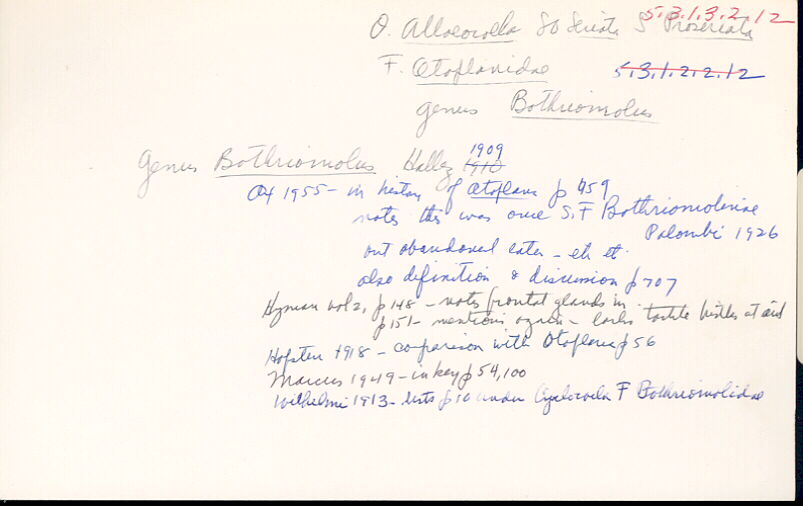 5.3.1.3.2.12
O. Alloeocoela SO Seriata S Proseriata
F. Otoplanidae 5.3.1.2.2.12
genus Bothriomolus
1909
Genus Bothriomolus Hallez 1910
Ax 1955 - in history of Otoplana p 459
notes this was once S.F Bothriomolinae
Palombi 1926
but abandoned later - etc etc
also definition & discussion p 707
Hyman vol 2, p 148 - notes frontal glands in
p 151 - mentions again - lacks tactile bristles at end
Hofsten 1918 - comparison with Otoplana p 56
Marcus 1949 - in key p 54, 100
Wilhelmi 1913 - lists p 10 under Cyclocoela F Bothriomolidae